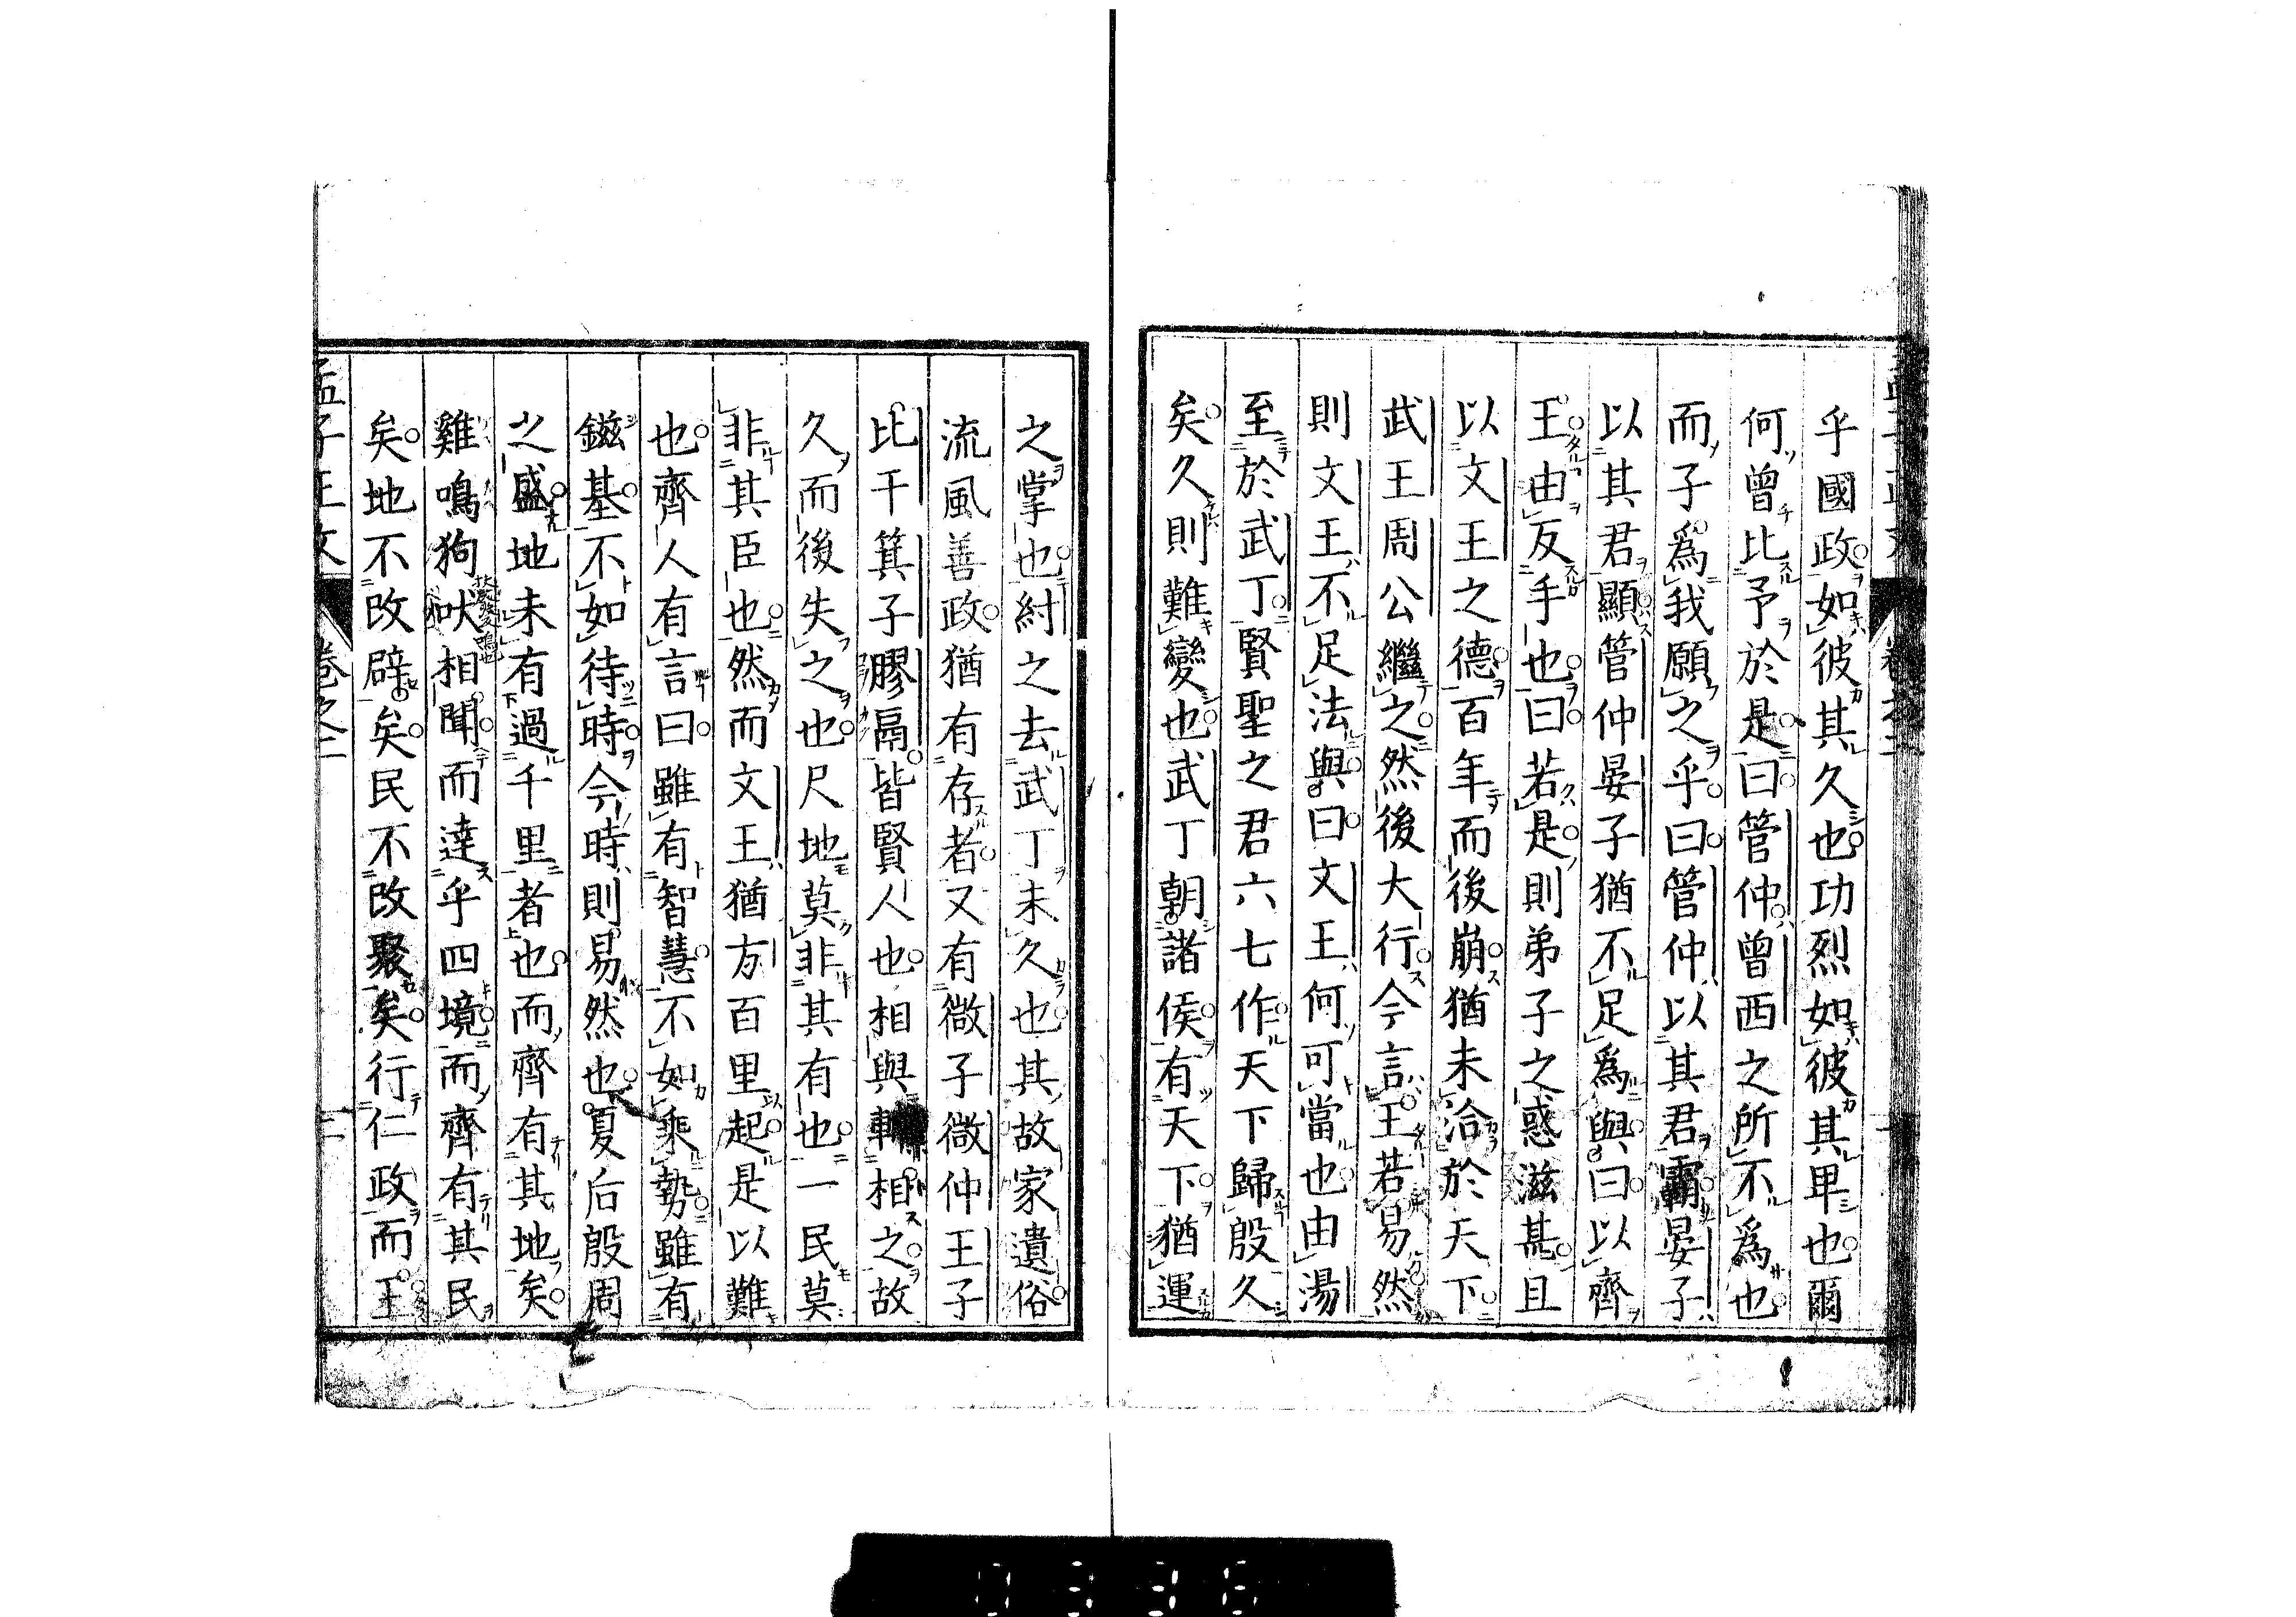 乎國政如彼其久也功烈如彼其卑也爾
何曾比予於是曰管仲曾西之所不爲也
而子爲我願之乎曰管仲以其君霸晏子
以其君顯管仲晏子猶不足爲與曰以齊
王由反手也曰若是則弟子之惑滋甚且
以文王之德百年而後崩猶未洽於天下
武王周公繼之然後大行今言王若易然
則文王不足法與曰文王何可當也由湯
至於武丁賢聖之君六七作天下歸殷久
矣久則難變也武丁朝諸侯有天下猶運
之掌也紂之去武丁未久也其故家遺俗
流風善政猶有存者又有微子微仲王子
比干箕子膠鬲皆賢人也相與輔相之故
久而後失之也尺地莫非其有也一民莫
非其臣也然而文王猶方百里起是以難
也齊人有言曰雖有智慧不如乘勢雖有
鎡基不如待時今時則易然也夏后殷周
之盛地未有過千里者也而齊有其地矣
雞鳴狗吠相聞而達乎四境而齊有其民
矣地不改辟矣民不改聚矣行仁政而王
孟子正文 卷之二